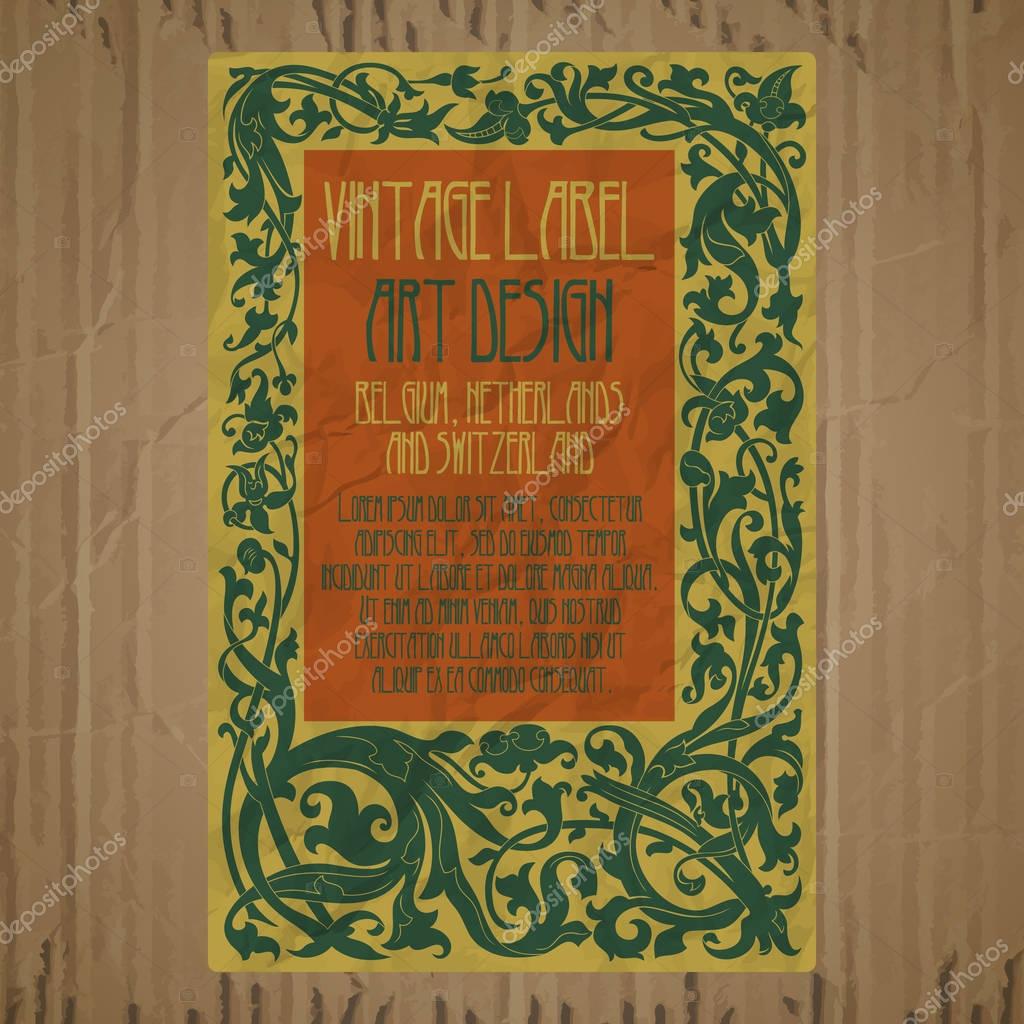 VINTAGE LABEL
ART DESIGN
BELGIUM, NETHERLANDS
AND SWITZERLAND
LOREM IPSUM DOLOR SIT AMET, CONSECTETUR
ADIPISCING ELIT, SED DO EIUSMOD TEMPOR
INCIDIDUNT UT LABORE ET DOLORE MAGNA ALIQUA.
UT ENIM AD MINIM VENIAM, QUIS NOSTRUD
EXERCITATION ULLAMCO LABORIS NISI UT
ALIQUIP EX EA COMMODO CONSEQUAT.
depositphotos
depositphotos
depositphotos
depositphotos
depositphotos
depositphotos
depositphotos
depositphotos
depositphotos
depositphotos
depositphotos
depositphotos